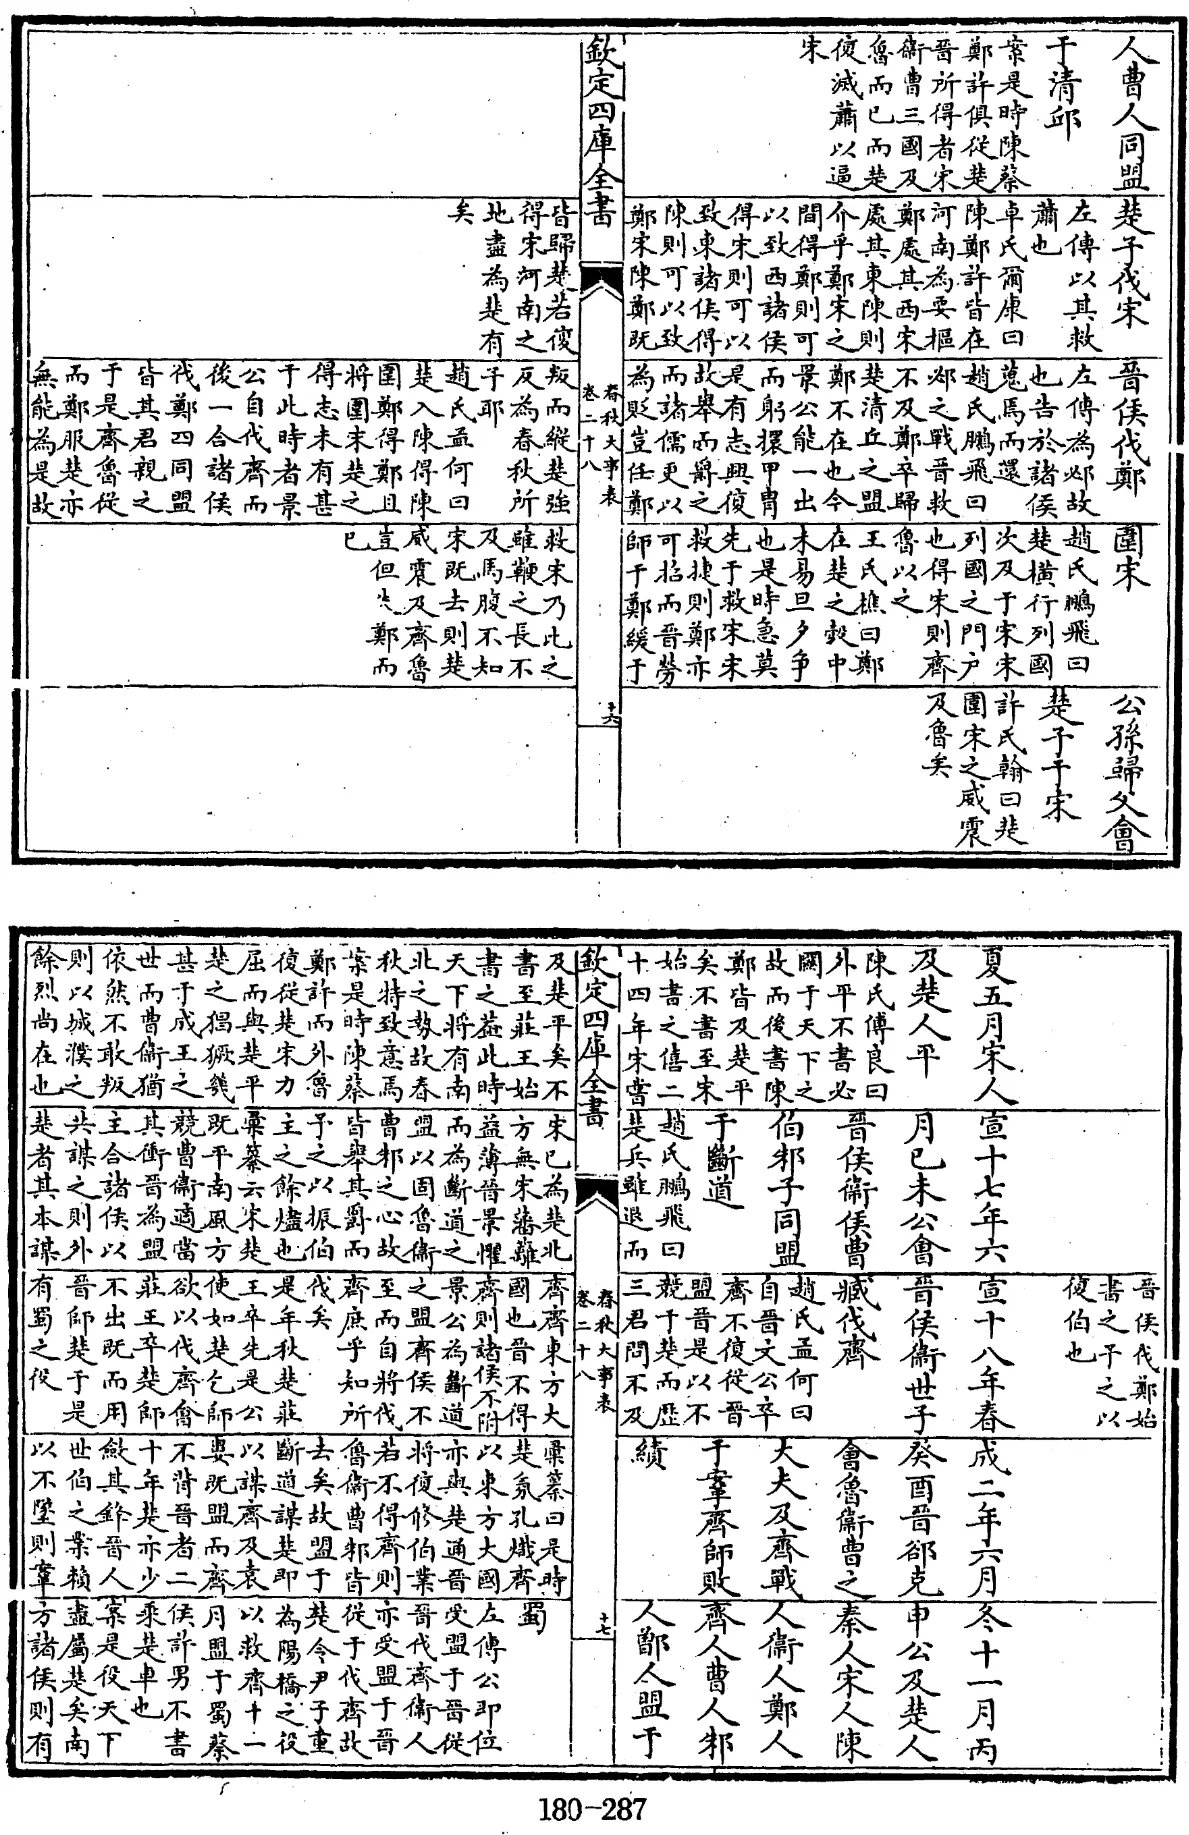 人曹人同盟
于清邱
案是時陳蔡
鄭許俱從楚
晉所得者宋
衛曹三國及
魯而已而楚
復滅蕭以逼
宋
楚子伐宋
左傳以其救
蕭也
卓氏爾康曰
陳鄭許皆在
河南為要樞
鄭處其西宋
處其東陳則
介乎鄭宋之
間得鄭則可
以致西諸侯
得宋則可以
致東諸侯得
陳則可以致
鄭宋陳鄭既
晉侯伐鄭
左傳為邲故
也告於諸侯
蒐焉而還
趙氏鵬飛曰
邲之戰晉救
不及鄭卒歸
楚清丘之盟
鄭不在也今
景公能一出
而躬擐甲胄
是有志興復
故舉而爵之
而諸儒更以
為貶豈任鄭
圍宋
趙氏鵬飛曰
楚橫行列國
次及于宋宋
列國之門户
也得宋則齊
魯以之
王氏樵曰鄭
在楚之彀中
未易旦夕争
也是時急莫
先于救宋宋
救捷則鄭亦
可招而晉勞
師于鄭緩于
公孫歸父會
楚子于宋
許氏翰曰楚
圍宋之威震
及魯矣
欽定四庫全書
春秋大事表
卷二十八
十六
皆歸楚若復
得宋河南之
地盡為楚有
矣
叛而縱楚強
反為春秋所
予耶
趙氏孟何曰
楚入陳得陳
圍鄭得鄭且
將圍宋楚之
得志未有甚
于此時者景
公自伐齊而
後一合諸侯
伐鄭四同盟
皆其君親之
于是齊魯從
而鄭服楚亦
無能為是故
救宋乃此之
雖鞭之長不
及馬腹不知
宋既去則楚
威震及齊魯
豈但失鄭而
已
夏五月宋人
及楚人平
陳氏傅良曰
外平不書必
闗于天下之
故而後書陳
鄭皆及楚平
矣不書至宋
始書之僖二
十四年宋嘗
宣十七年六
月己未公會
晉侯衛侯曹
伯邾子同盟
于斷道
趙氏鵬飛曰
楚兵雖退而
晉侯伐鄭始
書之予之以
復伯也
宣十八年春
晉侯衛世子
臧伐齊
趙氏孟何曰
自晉文公卒
齊不復從晉
盟晉是以不
競于楚而歷
三君問不及
成二年六月
癸酉晉郤克
會魯衛曹之
大夫及齊戰
于鞌齊師敗
績
冬十一月丙
申公及楚人
秦人宋人陳
人衛人鄭人
齊人曹人邾
人鄫人盟于
欽定四庫全書
春秋大事表
卷二十八
十七
及楚平矣不
書至莊王始
書之葢此時
天下將有南
北之勢故春
秋特致意焉
案是時陳蔡
鄭許而外魯
復從楚宋力
屈而與楚平
楚之猖獗幾
甚于成王之
世而曹衛猶
依然不敢叛
則以城濮之
餘烈尚在也
宋已為楚北
方無宋藩籬
益薄晉景懼
而為斷道之
盟以固魯衛
曹邾之心故
皆舉其爵而
予之以振伯
主之餘燼也
彚纂云宋楚
既平南風方
競曹衛適當
其衝晉為盟
主合諸侯以
共謀之則外
楚者其本謀
齊齊東方大
國也晉不得
齊則諸侯不附
景公為斷道
之盟齊侯不
至而自將伐
齊庶乎知所
伐矣
是年秋楚莊
王卒先是公
使如楚乞師
欲以伐齊會
莊王卒楚師
不出既而用
晉師楚于是
有蜀之役
彚纂曰是時
楚氛孔熾齊
以東方大國
亦與楚通晉
將復修伯業
若不得齊則
魯衛曹邾皆
去矣故盟于
斷道謀楚即
以謀齊及袁
婁既盟而齊
不背晉者二
十年楚亦少
斂其鋒晉人
世伯之業賴
以不墜則鞌
蜀
左傳公即位
受盟于晉從
晉伐齊衛人
亦受盟于晉
從于伐齊故
楚令尹子重
為陽橋之役
以救齊十一
月盟于蜀蔡
侯許男不書
乘楚車也
案是役天下
盡屬楚矣南
方諸侯則有
180-287